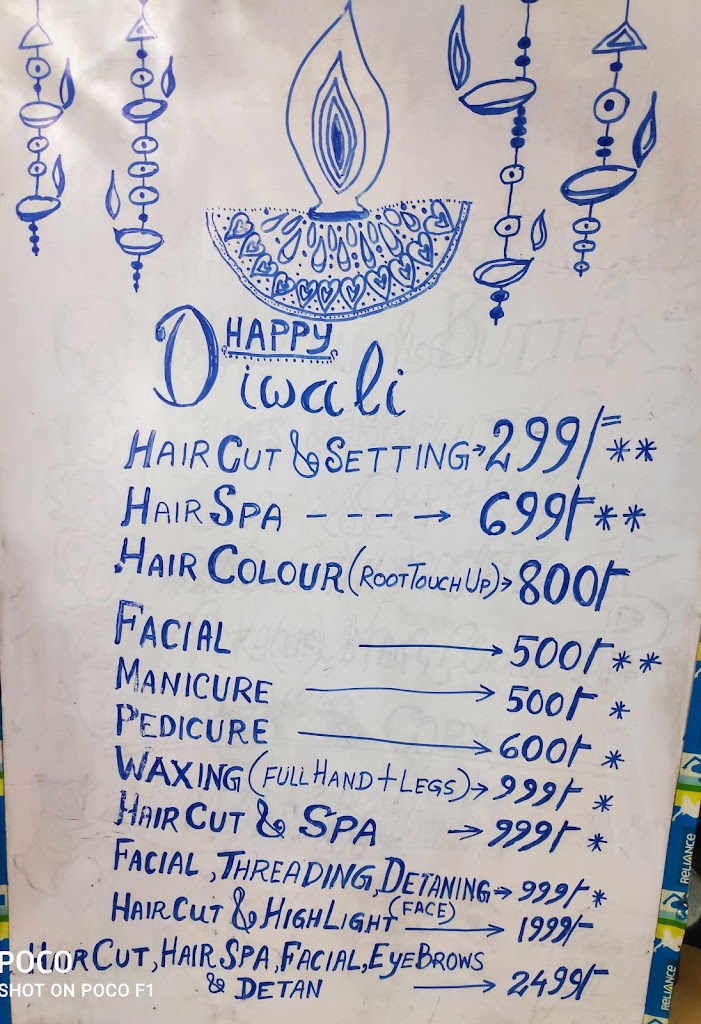 HAPPY
Diwali
HAIR CUT & SETTING → 299/= **
HAIR SPA ---→ 699/- **
HAIR COLOUR (ROOT TOUCH UP) → 800/-
FACIAL → 500/- **
MANICURE → 500/- *
PEDICURE → 600/- *
WAXING (FULL HAND + LEGS) → 999/- *
HAIR CUT & SPA → 999/- *
FACIAL, THREADING, DETANING → 999/- *
(FACE)
HAIR CUT & HIGHLIGHT → 1999/-
HAIR CUT, HAIR SPA, FACIAL, EYEBROWS
& DETAN → 2499/-
POCO
SHOT ON POCO F1
RELIANCE
RELIANCE